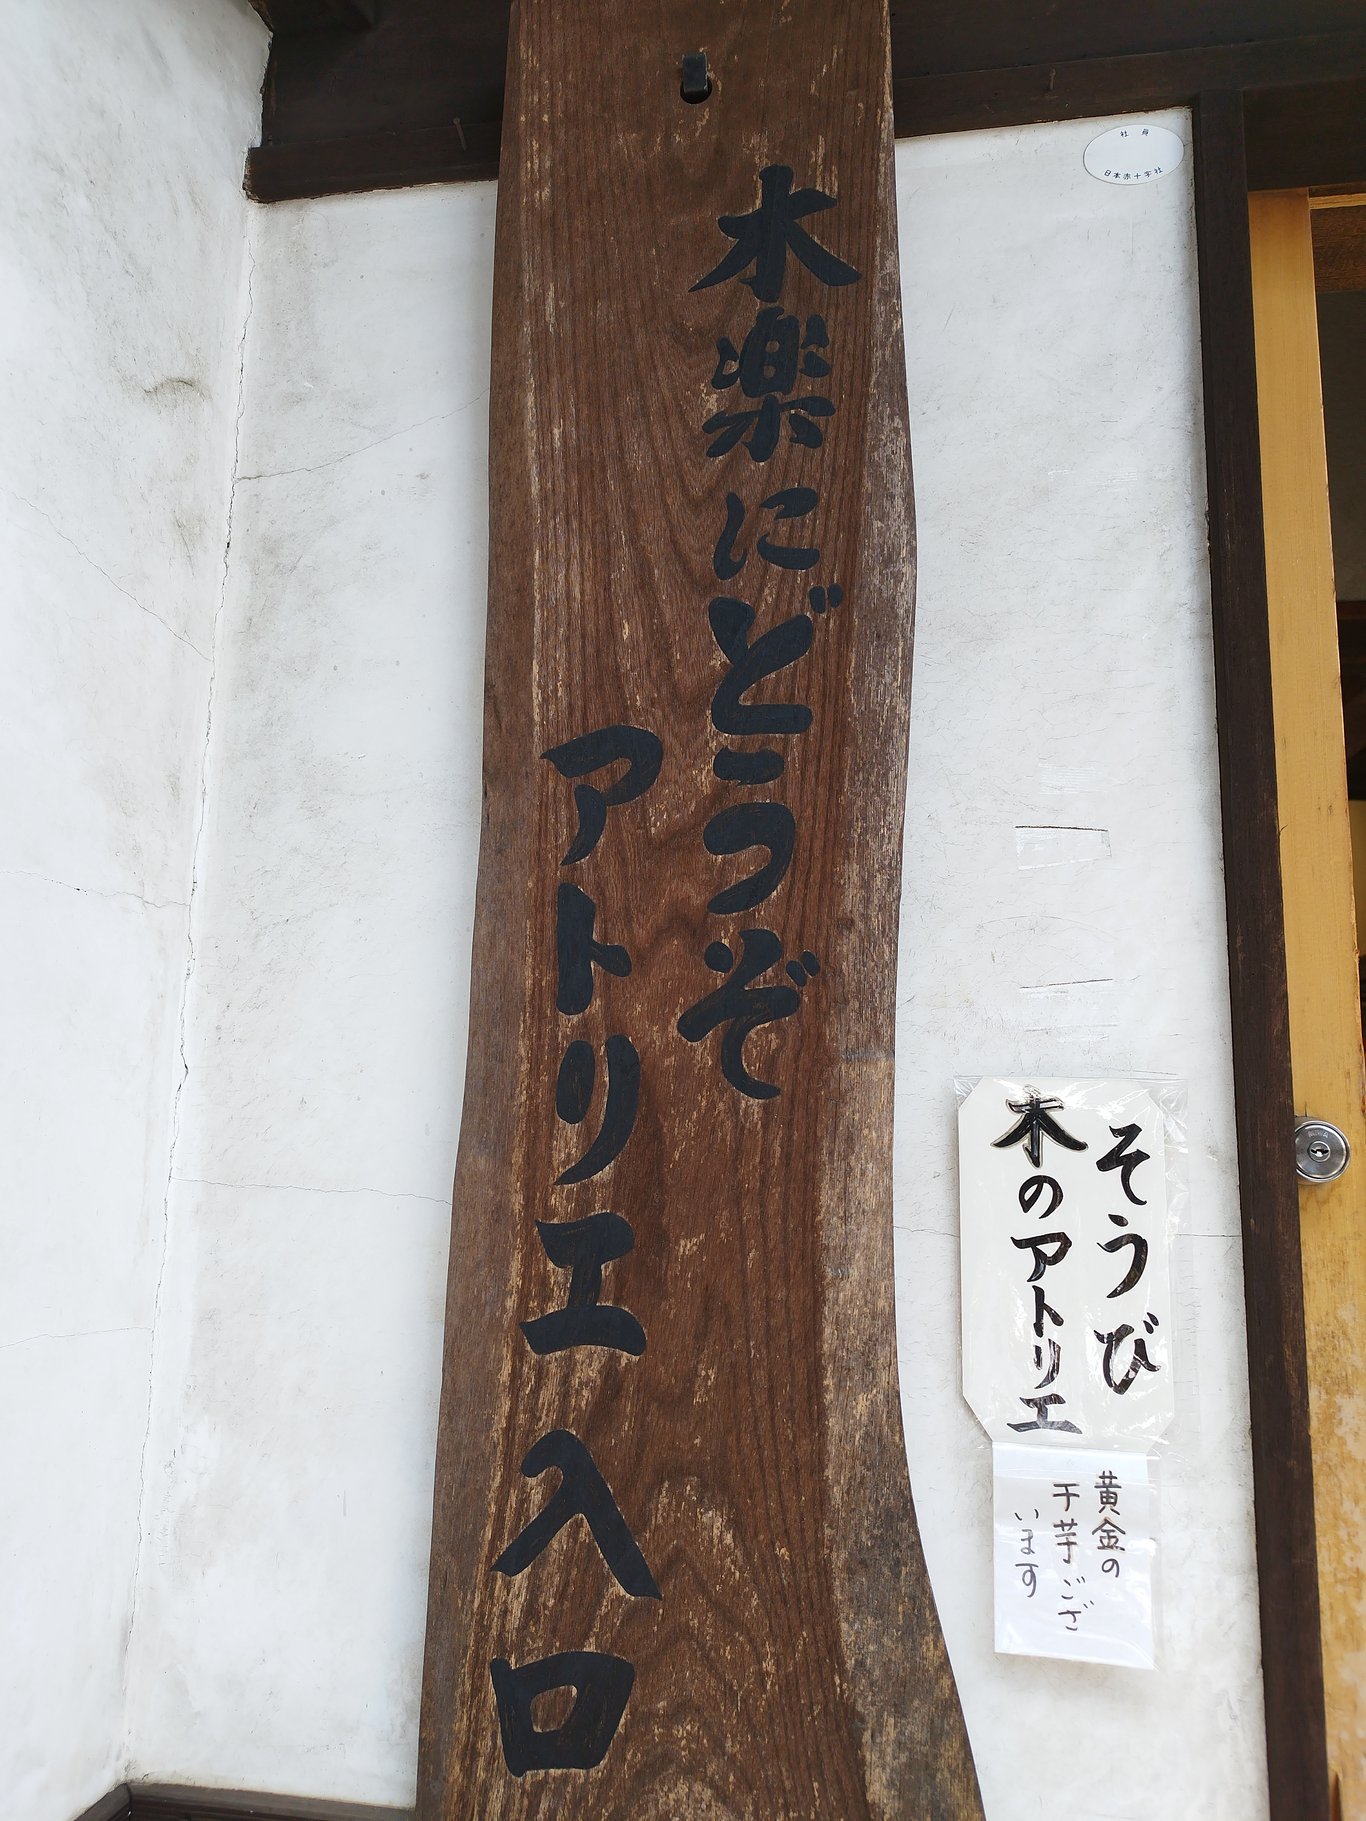 木楽にどうぞ
アトリエ入口
社員
日本赤十字社
そうび
木のアトリエ
黄金の
干芋ござ
います